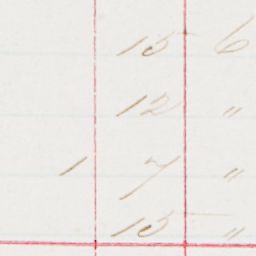 15 6
12 "
1 7 "
15 "